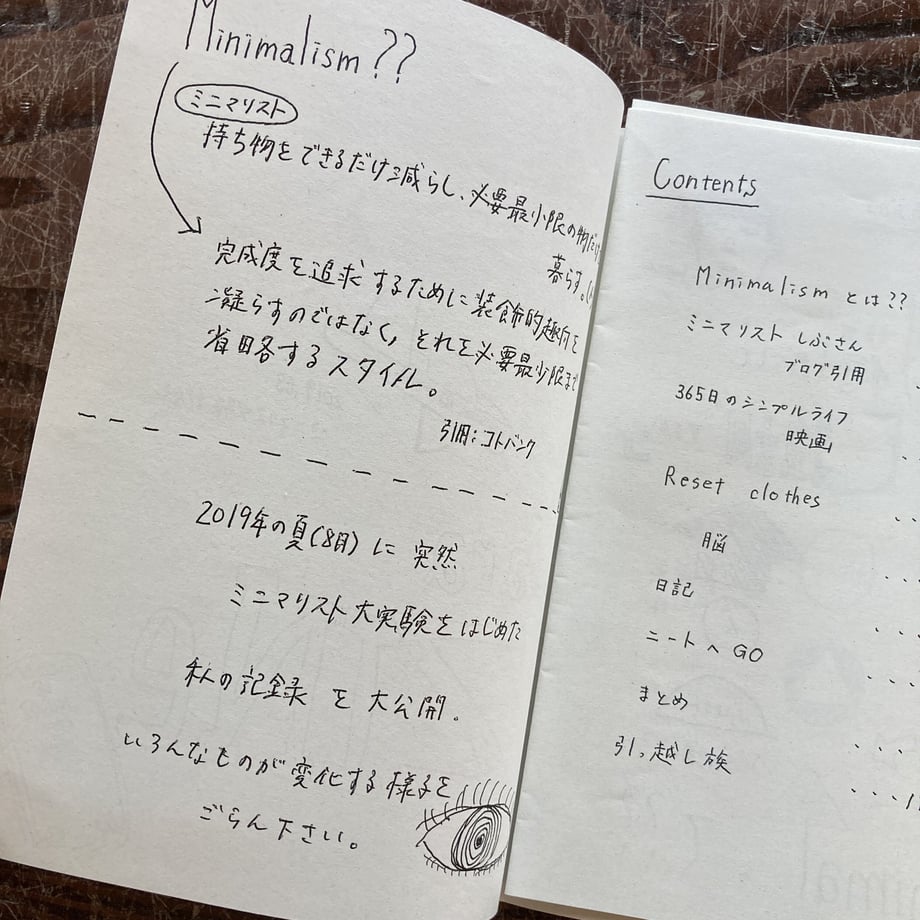 Minimalism??
ミニマリスト
持ち物をできるだけ減らし、必要最小限の物だけ
暮らす。
完成度を追求するために装飾的趣向を
凝らすのではなく、それを必要最少限まで
省略するスタイル。
引用:コトバンク
2019年の夏(8月)に突然
ミニマリスト大実験をはじめた
私の記録を大公開。
いろんなものが変化する様子を
ごらん下さい。
Contents
Minimalismとは??
ミニマリスト しぶさん
ブログ引用
365日のシンプルライフ
映画
Reset clothes
脳
日記
ニートへGO
まとめ
引っ越し族